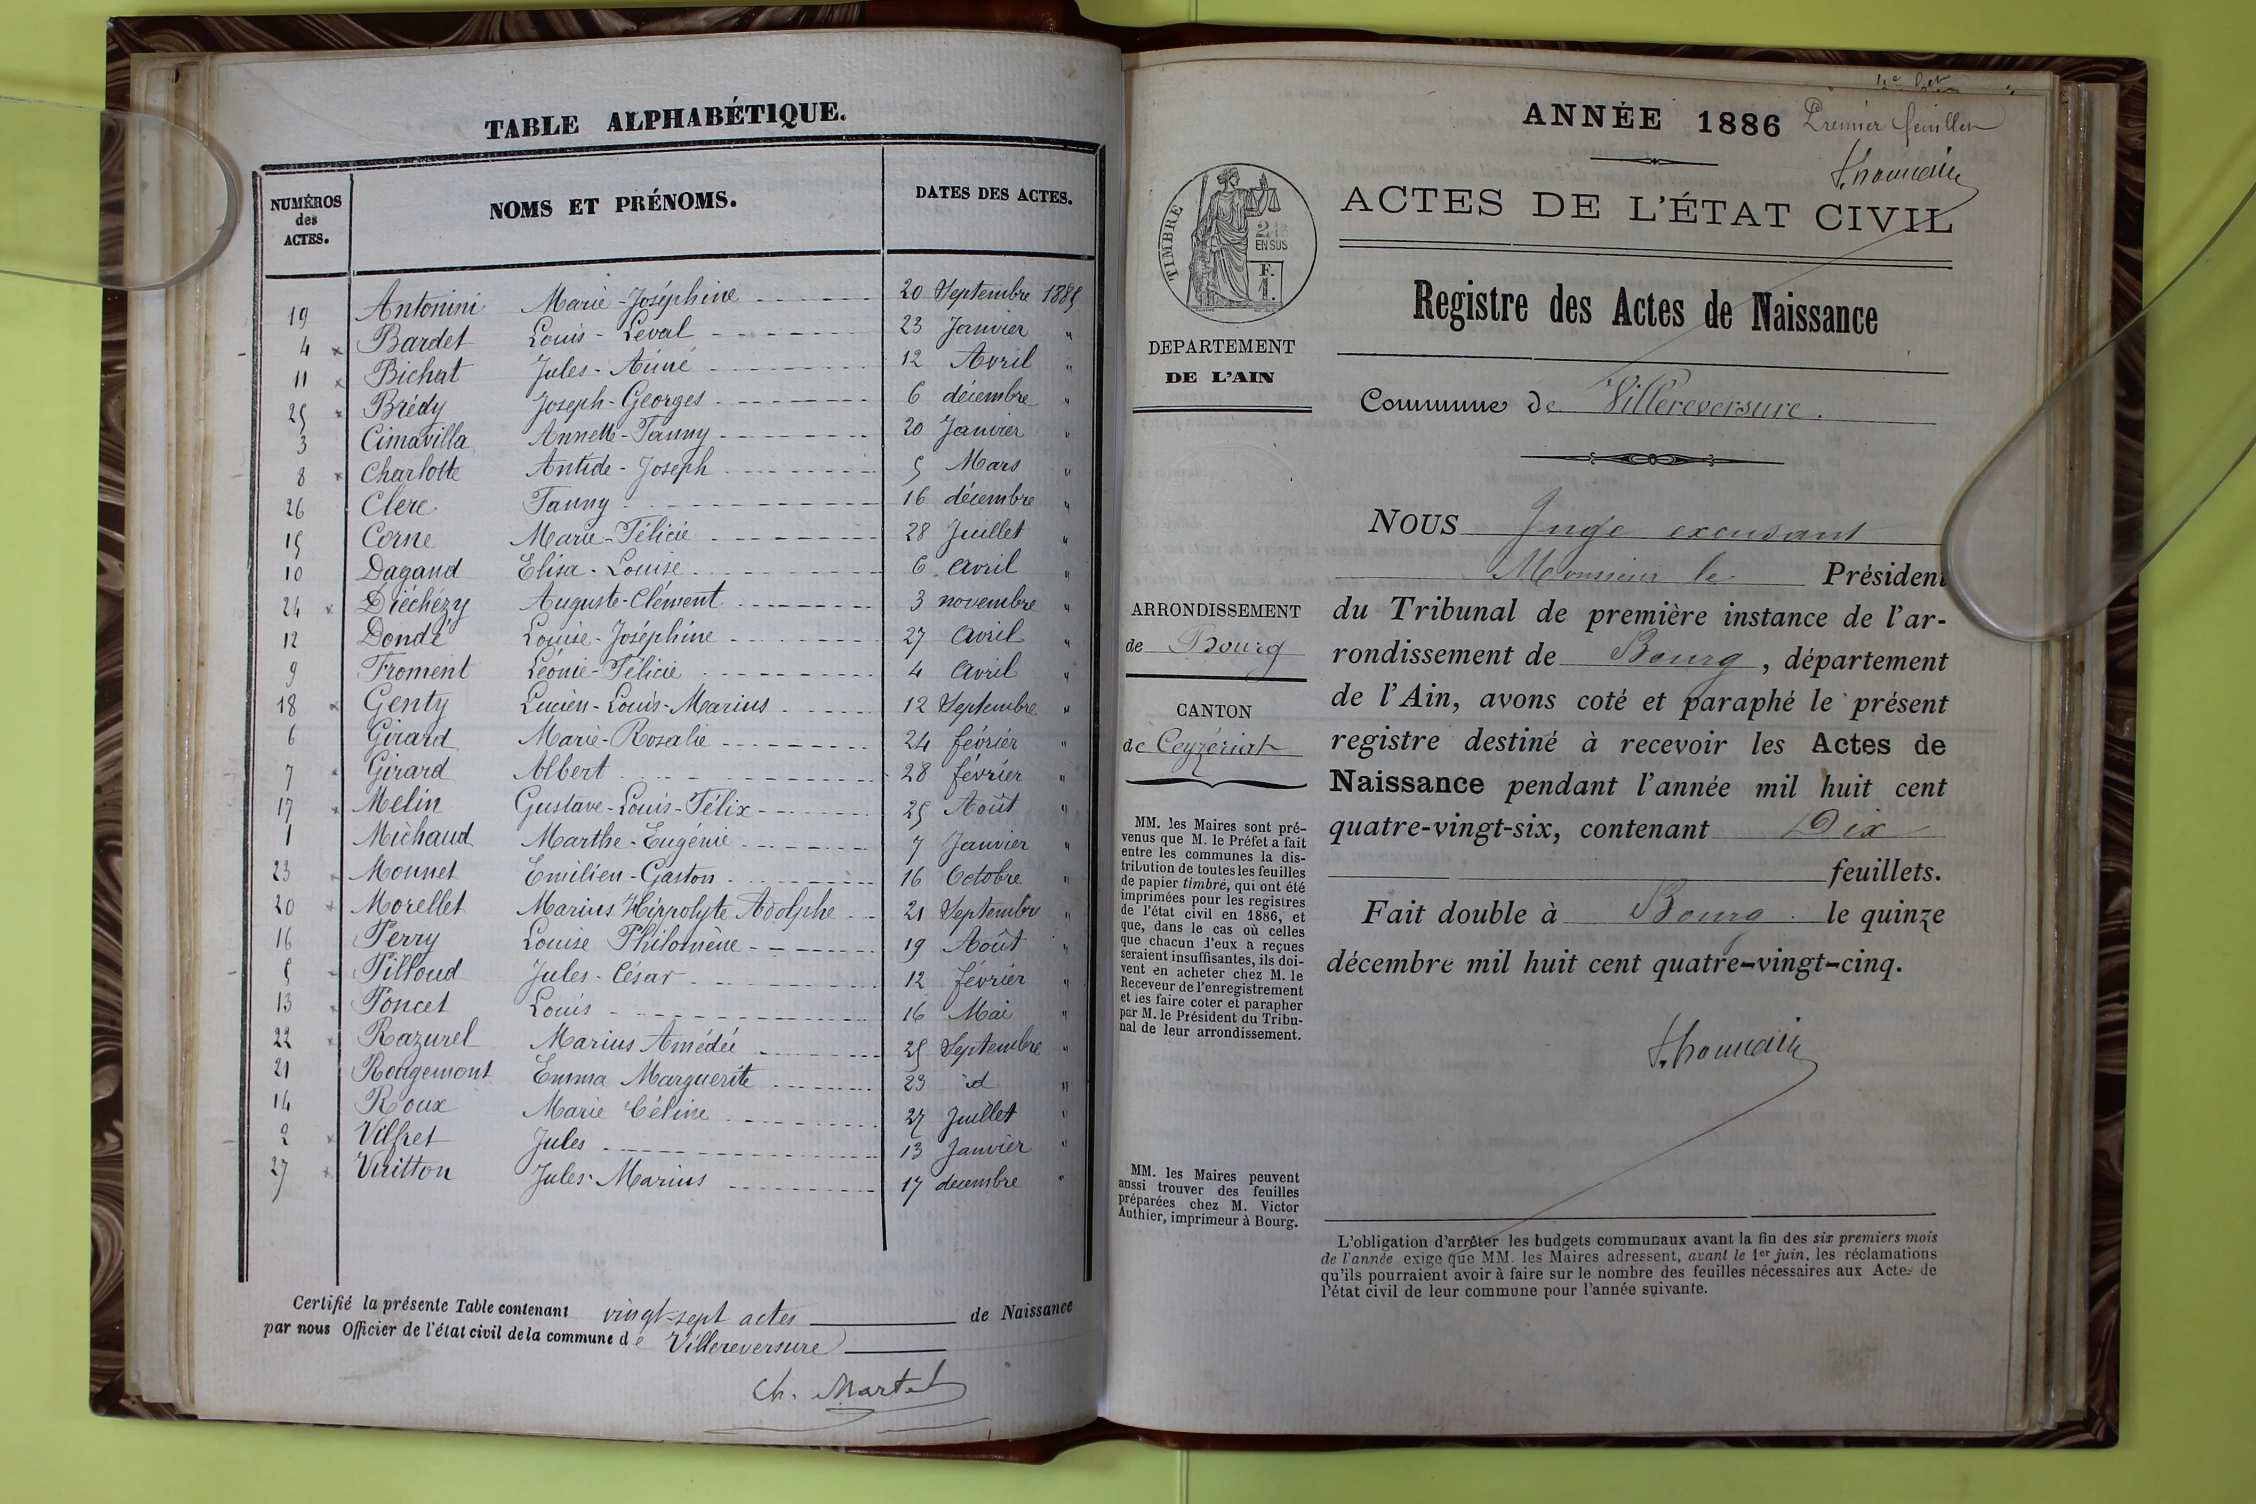 TABLE ALPHABÉTIQUE.
NUMÉROS des ACTES. NOMS ET PRÉNOMS. DATES DES ACTES.
19 Antonini Marie-Joséphine 20 Septembre 1885
4 x Bardet Louis-Leval 23 Janvier "
11 x Bichat Jules-Aimé 12 Avril "
25 x Brédy Joseph-Georges 6 décembre "
3 Cimavilla Annette-Fanny 20 Janvier "
8 x Charlotte Antide-Joseph 5 Mars "
26 Clerc Fanny 16 décembre "
15 Corne Marie-Félicie 28 Juillet "
10 Dagand Elisa-Louise 6 Avril "
24 x Diéchézy Auguste-Clément 3 novembre "
12 Dondé Louise-Joséphine 27 Avril "
9 Froment Léonie-Félicie 4 Avril "
18 x Genty Lucien-Louis-Marius 12 Septembre "
6 Girard Marie-Rosalie 24 février "
7 x Girard Albert 28 février "
17 x Melin Gustave-Louis-Félix 25 Août "
1 Michaud Marthe-Eugénie 7 Janvier "
23 x Monnet Emilien-Gaston 16 Octobre "
20 x Morellet Marius Hippolyte Adolphe 21 Septembre "
16 Perry Louise Philomène 19 Août "
5 x Pilloud Jules-César 12 février "
13 x Poncet Louis 16 Mai "
22 x Razurel Marius Amédée 25 Septembre "
21 Rougemont Emma Marguerite 23 id "
14 Roux Marie Céline 27 Juillet "
2 x Vilfret Jules 13 Janvier "
27 x Vuitton Jules-Marius 17 decembre "
Certifié la présente Table contenant vingt-sept actes de Naissance
par nous Officier de l'état civil de la commune de Villereversure
Ch. Martel
ANNÉE 1886 Premier feuillet
ACTES DE L'ÉTAT CIVIL
TIMBRE
EN SUS
F.
1.
Registre des Actes de Naissance
DEPARTEMENT
DE L'AIN
Commune de Villereversure.
NOUS Juge excusant
Monsieur le Président
du Tribunal de première instance de l'ar-
rondissement de Bourg, département
de l'Ain, avons coté et paraphé le présent
registre destiné à recevoir les Actes de
Naissance pendant l'année mil huit cent
quatre-vingt-six, contenant Dix
feuillets.
Fait double à Bourg le quinze
décembre mil huit cent quatre-vingt-cinq.
ARRONDISSEMENT
de Bourg
CANTON
de Ceyzériat
MM. les Maires sont pré-
venus que M. le Préfet a fait
entre les communes la dis-
tribution de toutes les feuilles
de papier timbré, qui ont été
imprimées pour les registres
de l'état civil en 1886, et
que, dans le cas où celles
que chacun d'eux a reçues
seraient insuffisantes, ils doi-
vent en acheter chez M. le
Receveur de l'enregistrement
et les faire coter et parapher
par M. le Président du Tribu-
nal de leur arrondissement.
MM. les Maires peuvent
aussi trouver des feuilles
préparées chez M. Victor
Authier, imprimeur à Bourg.
L'obligation d'arrêter les budgets communaux avant la fin des six premiers mois
de l'année exige que MM. les Maires adressent, avant le 1er juin, les réclamations
qu'ils pourraient avoir à faire sur le nombre des feuilles nécessaires aux Actes de
l'état civil de leur commune pour l'année suivante.